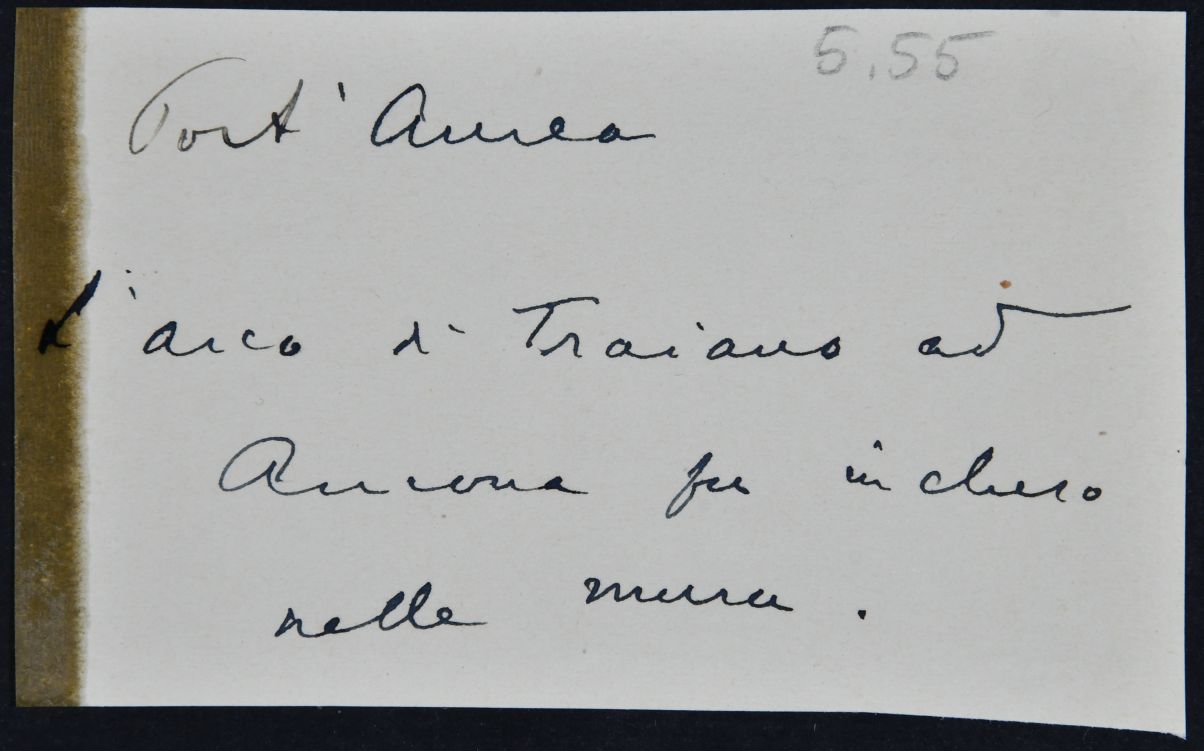 5.55
Port' Aurea
L'arco di Traiano ad
Ancona fu incluso
nelle mura.